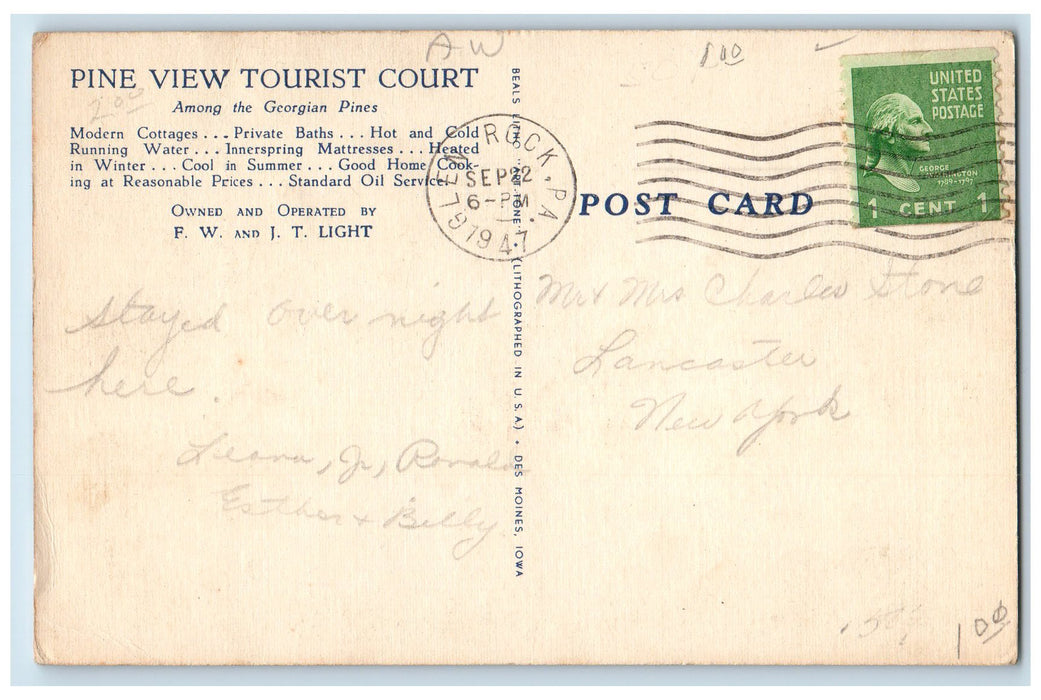 AW
1.00
PINE VIEW TOURIST COURT
Among the Georgian Pines
2.00
Modern Cottages . . . Private Baths . . . Hot and Cold
Running Water . . . Innerspring Mattresses . . . Heated
in Winter . . . Cool in Summer . . . Good Home Cook-
ing at Reasonable Prices . . . Standard Oil Service.
OWNED AND OPERATED BY
F. W. AND J. T. LIGHT
Stayed over night
here.
Leona, Jr, Ronald
Esther + Billy
BEALS LITHO. • (LITHOGRAPHED IN U. S. A.) • DES MOINES, IOWA
GLEN ROCK, PA.
SEP 22
6-PM
1947
POST CARD
UNITED
STATES
POSTAGE
GEORGE
WASHINGTON
1789-1797
1 CENT 1
Mr + Mrs Charles Stone
Lancaster
New York
1.00